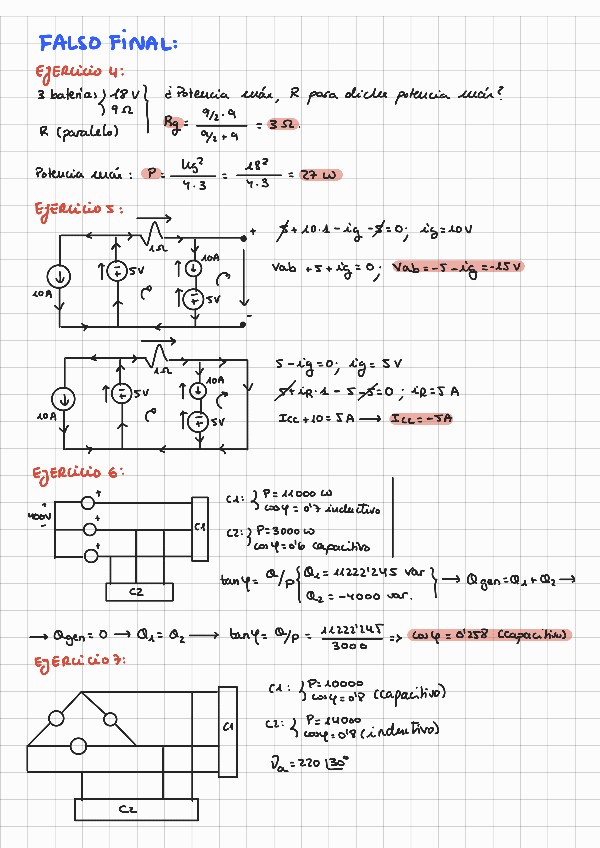 FALSO FINAL:
EJERCICIO 4:
3 baterías } 18 V
9 Ω
R (paralelo)
¿Potencia máx, R para dicha potencia máx?
Rg = 9/2 · 9 / 9/2 + 9 = 3 Ω.
Potencia máx: P = Ug² / 4·3 = 18² / 4·3 = 27 W
EJERCICIO 5:
1Ω
10A
5V
10A
5V
+
-
5 + 10·1 - ig - 5 = 0; ig = 10V
Vab + 5 + ig = 0; Vab = -5 - ig = -15V
1Ω
10A
5V
10A
5V
5 - ig = 0; ig = 5V
5 + iR·1 - 5 - 5 = 0; iR = 5A
Icc + 10 = 5A → Icc = -5A
EJERCICIO 6:
400V
+
+
+
C1
C2
C1: } P = 11000 W
cosφ = 0'7 inductivo
C2: } P = 3000 W
cosφ = 0'6 capacitivo
tanφ = Q/P { Q1 = 11222'245 var
Q2 = -4000 var. } → Qgen = Q1 + Q2 →
→ Qgen = 0 → Q1 = Q2 → tanφ = Q/P = 11222'245 / 3000 => cosφ = 0'258 (capacitivo)
EJERCICIO 7:
C1
C2
C1: } P = 10000
cosφ = 0'8 (capacitivo)
C2: } P = 14000
cosφ = 0'8 (inductivo)
Va = 220 |30°